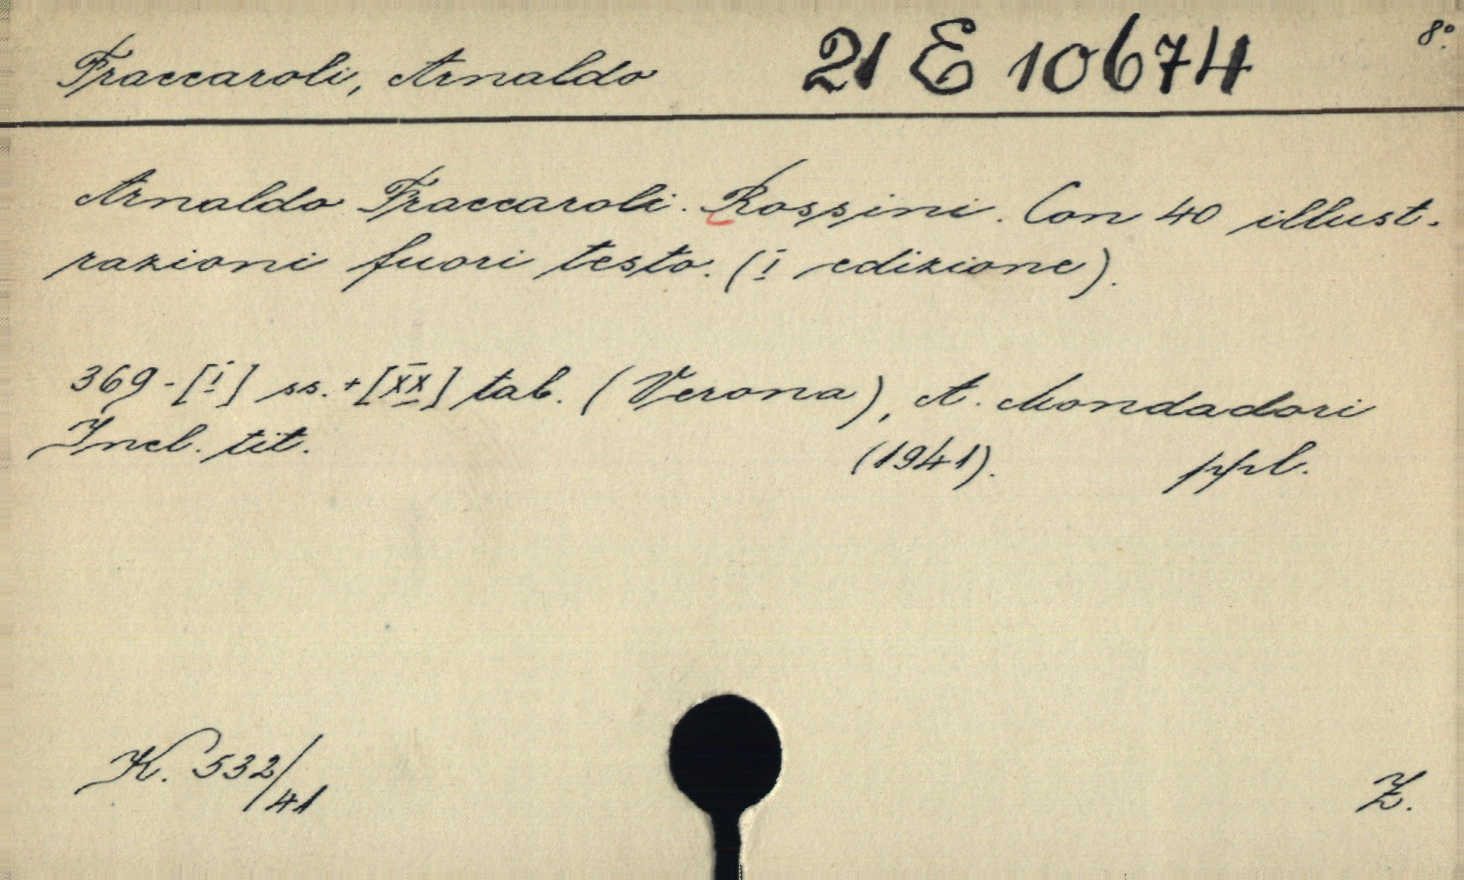 Fraccaroli, Arnaldo 21 E 10674 8°.
Arnaldo Fraccaroli. Rossini. Con 40 illust-
razioni fuori testo. (I edizione).
369-[I] ss. + [XX] tab. (Verona), A. Mondadori
Incl. tit. (1941). ppl.
K. 532/41
Z.